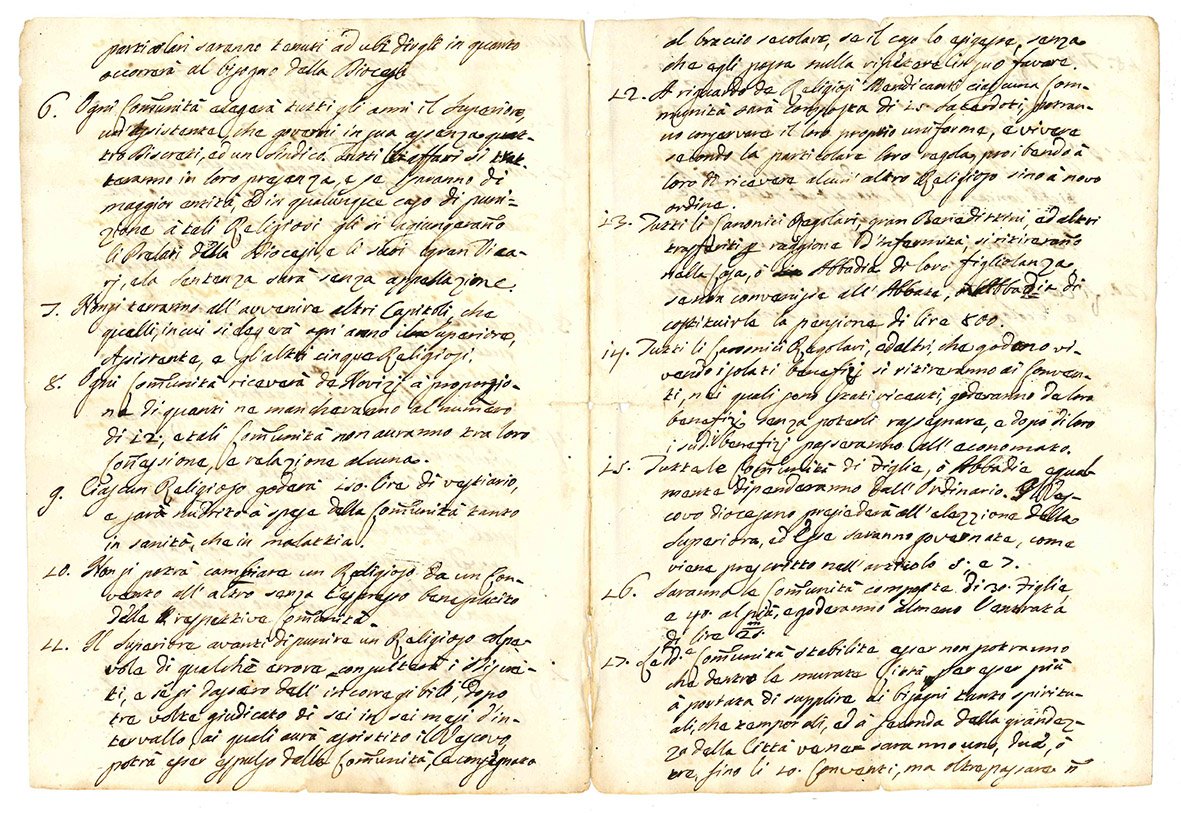 particolari saranno tenuti ad ubidirgli in quanto
occorrerà al bisogno della Diocesi
6. Ogni Comunità elegerà tutti gli anni il Superiore,
un Assistente, che governi in sua assenza, quat-
tro Discreti, ed un Sindico. Tutti affari si trat-
teranno in loro presenza, e se saranno di
maggior entità, ed in qualunque caso di puni-
zione à tali Religiosi gli si aggiungeranno
li Prelati della Diocesi, e li suoi Gran Vica-
rj, e la sentenza sarà senza appellazione.
7. Non si terranno all'avvenire altri Capitoli, che
quelli, in cui si elegerà ogn'anno il Superiore,
Assistente, e gl'altri cinque Religiosi.
8. Ogni Comunità riceverà de Novizj à proporzio-
ne di quanti ne mancheranno al numero
di 12; e tali Comunità non auranno tra loro
Connessione, e relazione alcuna.
9. Ciascun Religioso goderà 150. lire di vestiario,
e sarà nudrito à spese della Comunità tanto
in sanità, che in malattia.
10. Non si potrà cambiare un Religioso da un Con-
vento all'altro senza l'espresso beneplacito
delle respettive Comunità.
11. Il Superiore avanti di punire un Religioso colpe-
vole di qualche errore, consulterà i Discre-
ti, e se si dassero dell'incorregibili, dopo
tre volte giudicato di sei in sei mesi d'in-
tervallo, ai quali aurà assistito il Vescovo,
potrà esser espulso dalla Comunità, e consignato
al braccio secolare, se il caso lo esigesse, senza
che egli possa nulla ripetere in suo favore.
12. A riguardo de Religiosi Mendicanti ciascuna Com-
munità sarà composta di 15 sacerdoti, potran-
no conservare il loro proprio uniforme, e vivere
secondo la particolare loro regola, proibendo à
loro di ricevere alcun altro Religioso sino à novo
ordine.
13. Tutti li Canonici Regolari, gran Benedittini, ed altri
trasferiti p raggione d'infermità, si ritireranno
nella Casa, ò Abbadia de loro figliolanza
se non convenisse all'Abbate, Abbadia di
costituirle la pensione di lire 800.
14. Tutti li Canonici Regolari, ed altri, che godono vi-
vendo isolati benefizj si ritireranno ai Conven-
ti, nei quali però stati ricevuti, goderanno de loro
benefizj senza poterli rassegnare, e dopo di loro
i sud.i benefizj passeranno all'economato.
15. Tutte le Comunità di Figlie, ò Abbadie equal-
mente dipenderanno dall'Ordinario. Il Ves-
covo diocesano presiederà all'elezzione della
Superiora, ed Esse saranno governate, come
viene prescritto nell'articolo 5. e 7.
16. Saranno le Comunità composte di 30. Figlie,
e 40. al più, e goderanno almeno l'entrata
di lire
17. Le d.e Comunità stabilite esser non potranno
che dentro le murate Città per esser più
à portata di supplire ai bisogni tanto spiritu-
ali, che temporali, ed à seconda della grandez-
za della Città vene saranno uno, due, ò
tre, sino li 10. Conventi, ma oltrepassare